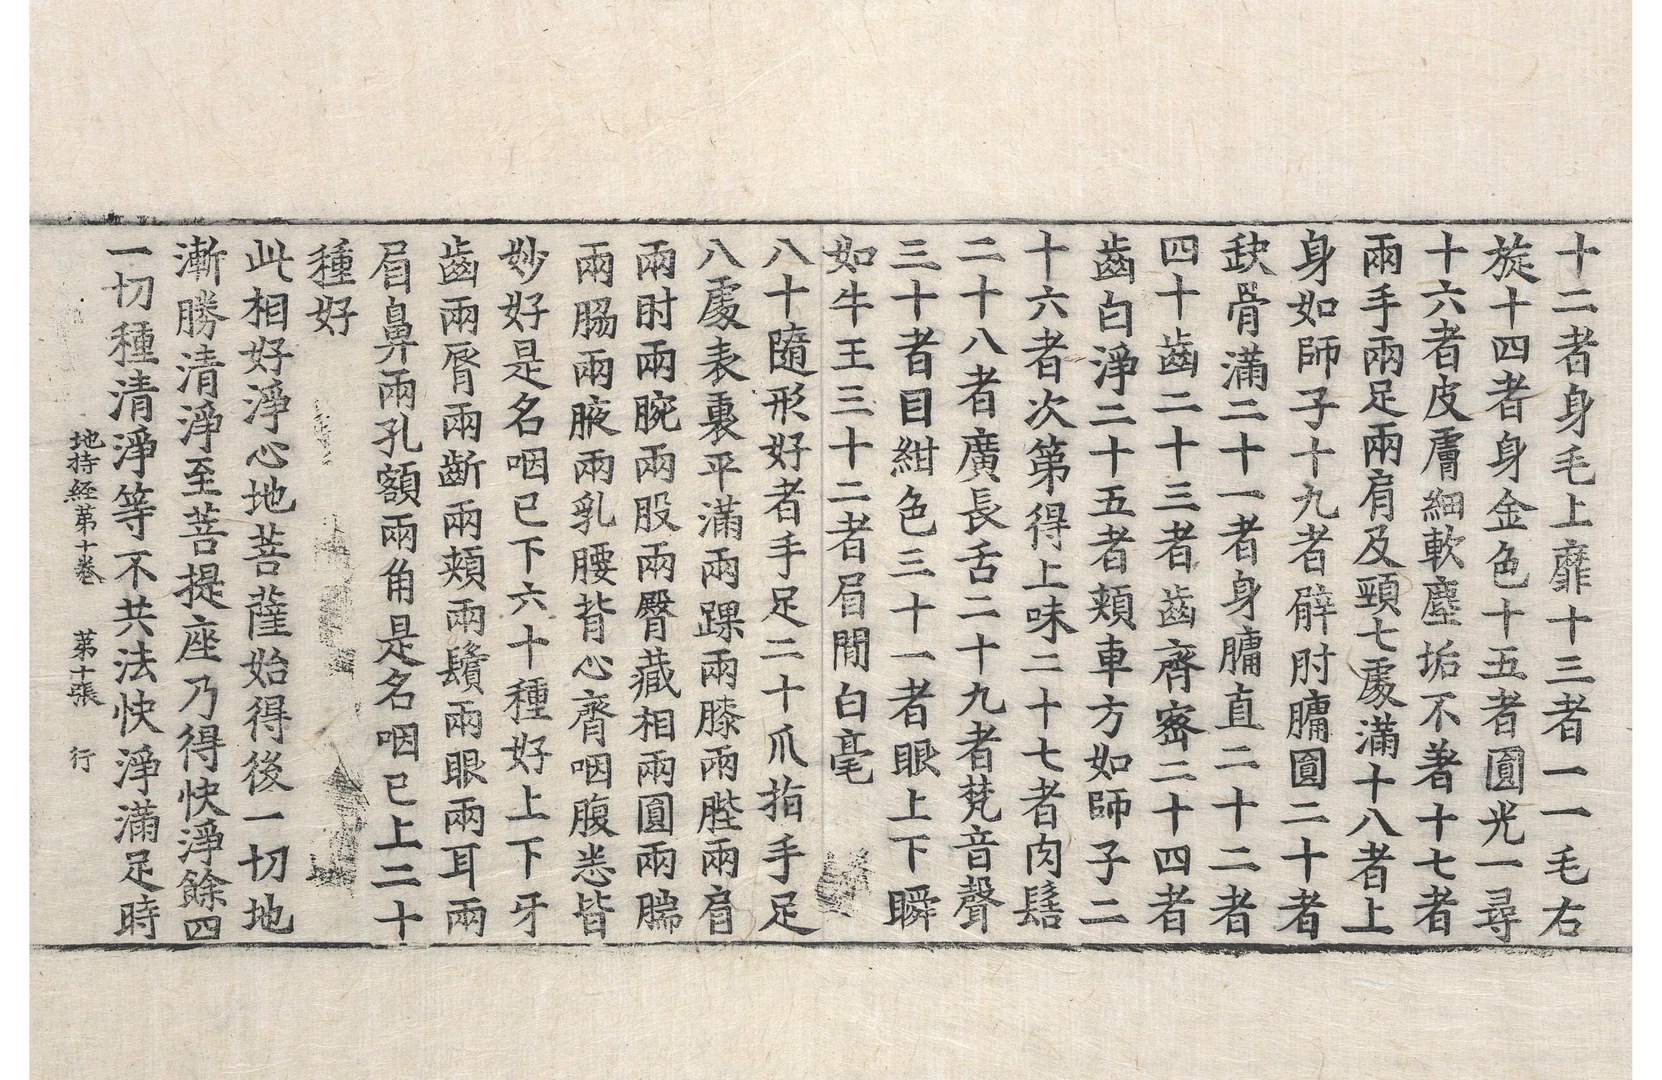 十二者身毛上靡十三者一一毛右
旋十四者身金色十五者圓光一尋
十六者皮膚細軟塵垢不著十七者
兩手兩足兩肩及頸七處滿十八者上
身如師子十九者臂肘𦟛圓二十者
缺骨滿二十一者身𦟛直二十二者
四十齒二十三者齒齊密二十四者
齒白淨二十五者頰車方如師子二
十六者次第得上味二十七者肉髻
二十八者廣長舌二十九者梵音聲
三十者目紺色三十一者眼上下瞬
如牛王三十二者眉間白毫
八十隨形好者手足二十爪指手足
八處表裏平滿兩踝兩膝兩䏶兩肩
兩肘兩腕兩股兩臀藏相兩圓兩腨
兩腸兩腋兩乳腰背心齊咽腹悉皆
妙好是名咽已下六十種好上下牙
齒兩脣兩齗兩頰兩鬢兩眼兩耳兩
眉鼻兩孔額兩角是名咽已上二十
種好
此相好淨心地菩薩始得後一切地
漸勝清淨至菩提座乃得快淨餘四
一切種清淨等不共法快淨滿足時
地持経苐十卷 苐十張 行